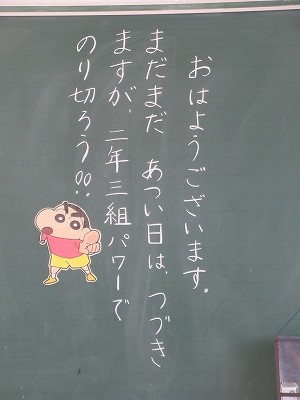 おはようございます。
まだまだ　あつい日は、つづき
ますが、二年三組パワーで
のり切ろう!!